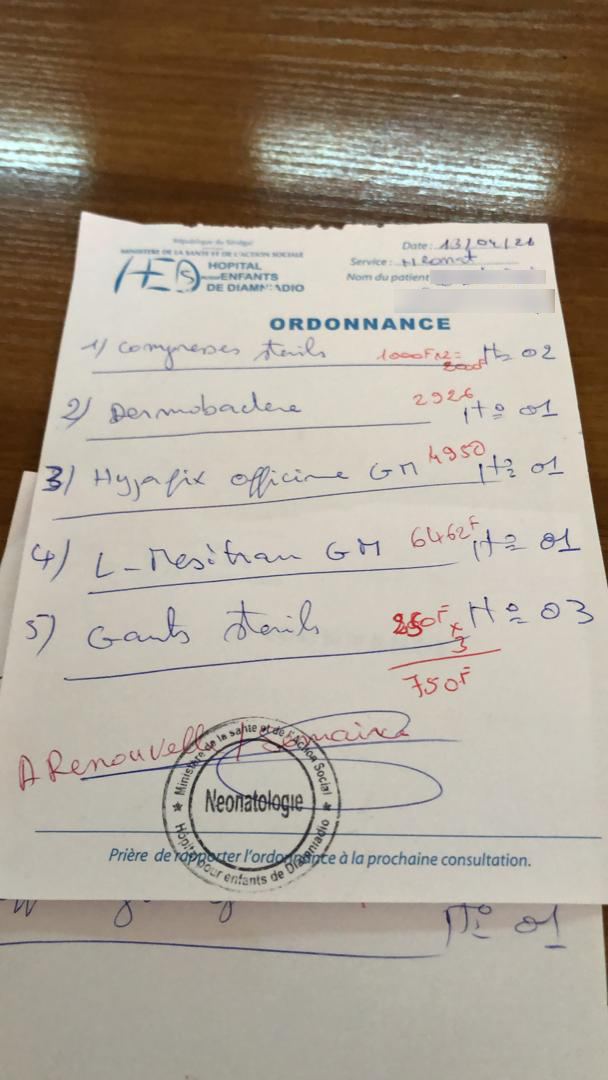 République du Sénégal
MINISTERE DE LA SANTE ET DE L'ACTION SOCIALE
HED
HOPITAL
POUR ENFANTS
DE DIAMNIADIO
Date : 13/04/26
Service : Neonat
Nom du patient
ORDONNANCE
1) Compresses sterils 1000F x2= 2000F N= 02
2) Dermobactere 2926 N= 01
3) Hyjafix officine GM 4950 N= 01
4) L-Mesitran GM 6462F N= 01
5) Gants sterils 250F x 3 N= 03
750F
A Renouveller / semaine
Ministère de la santé et de l'Action Social
Neonatologie
Hôpital pour enfants de Diamniadio
Prière de rapporter l'ordonnance à la prochaine consultation.
N= 01